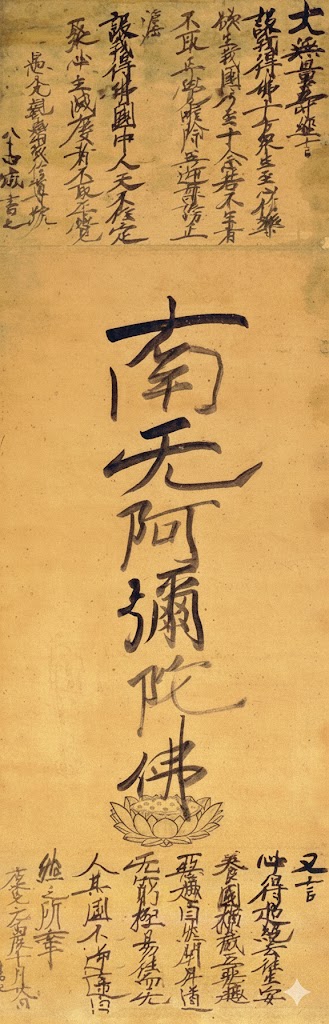 大無量壽經言
設我得佛十方衆生至心信樂
欲生我國乃至十念若不生者
不取正覺唯除五逆誹謗正
法
設我得佛國中人天不住定
聚必至滅度者不取正覺
愚禿親鸞敬信尊號
八十四歳書之
南无阿彌陀佛
又言
必得超絶去往生安
養國横截五惡趣
惡趣自然閉昇道
无窮極易往而无
人其國不逆違自
然之所牽
康元元丙辰十月廿八日